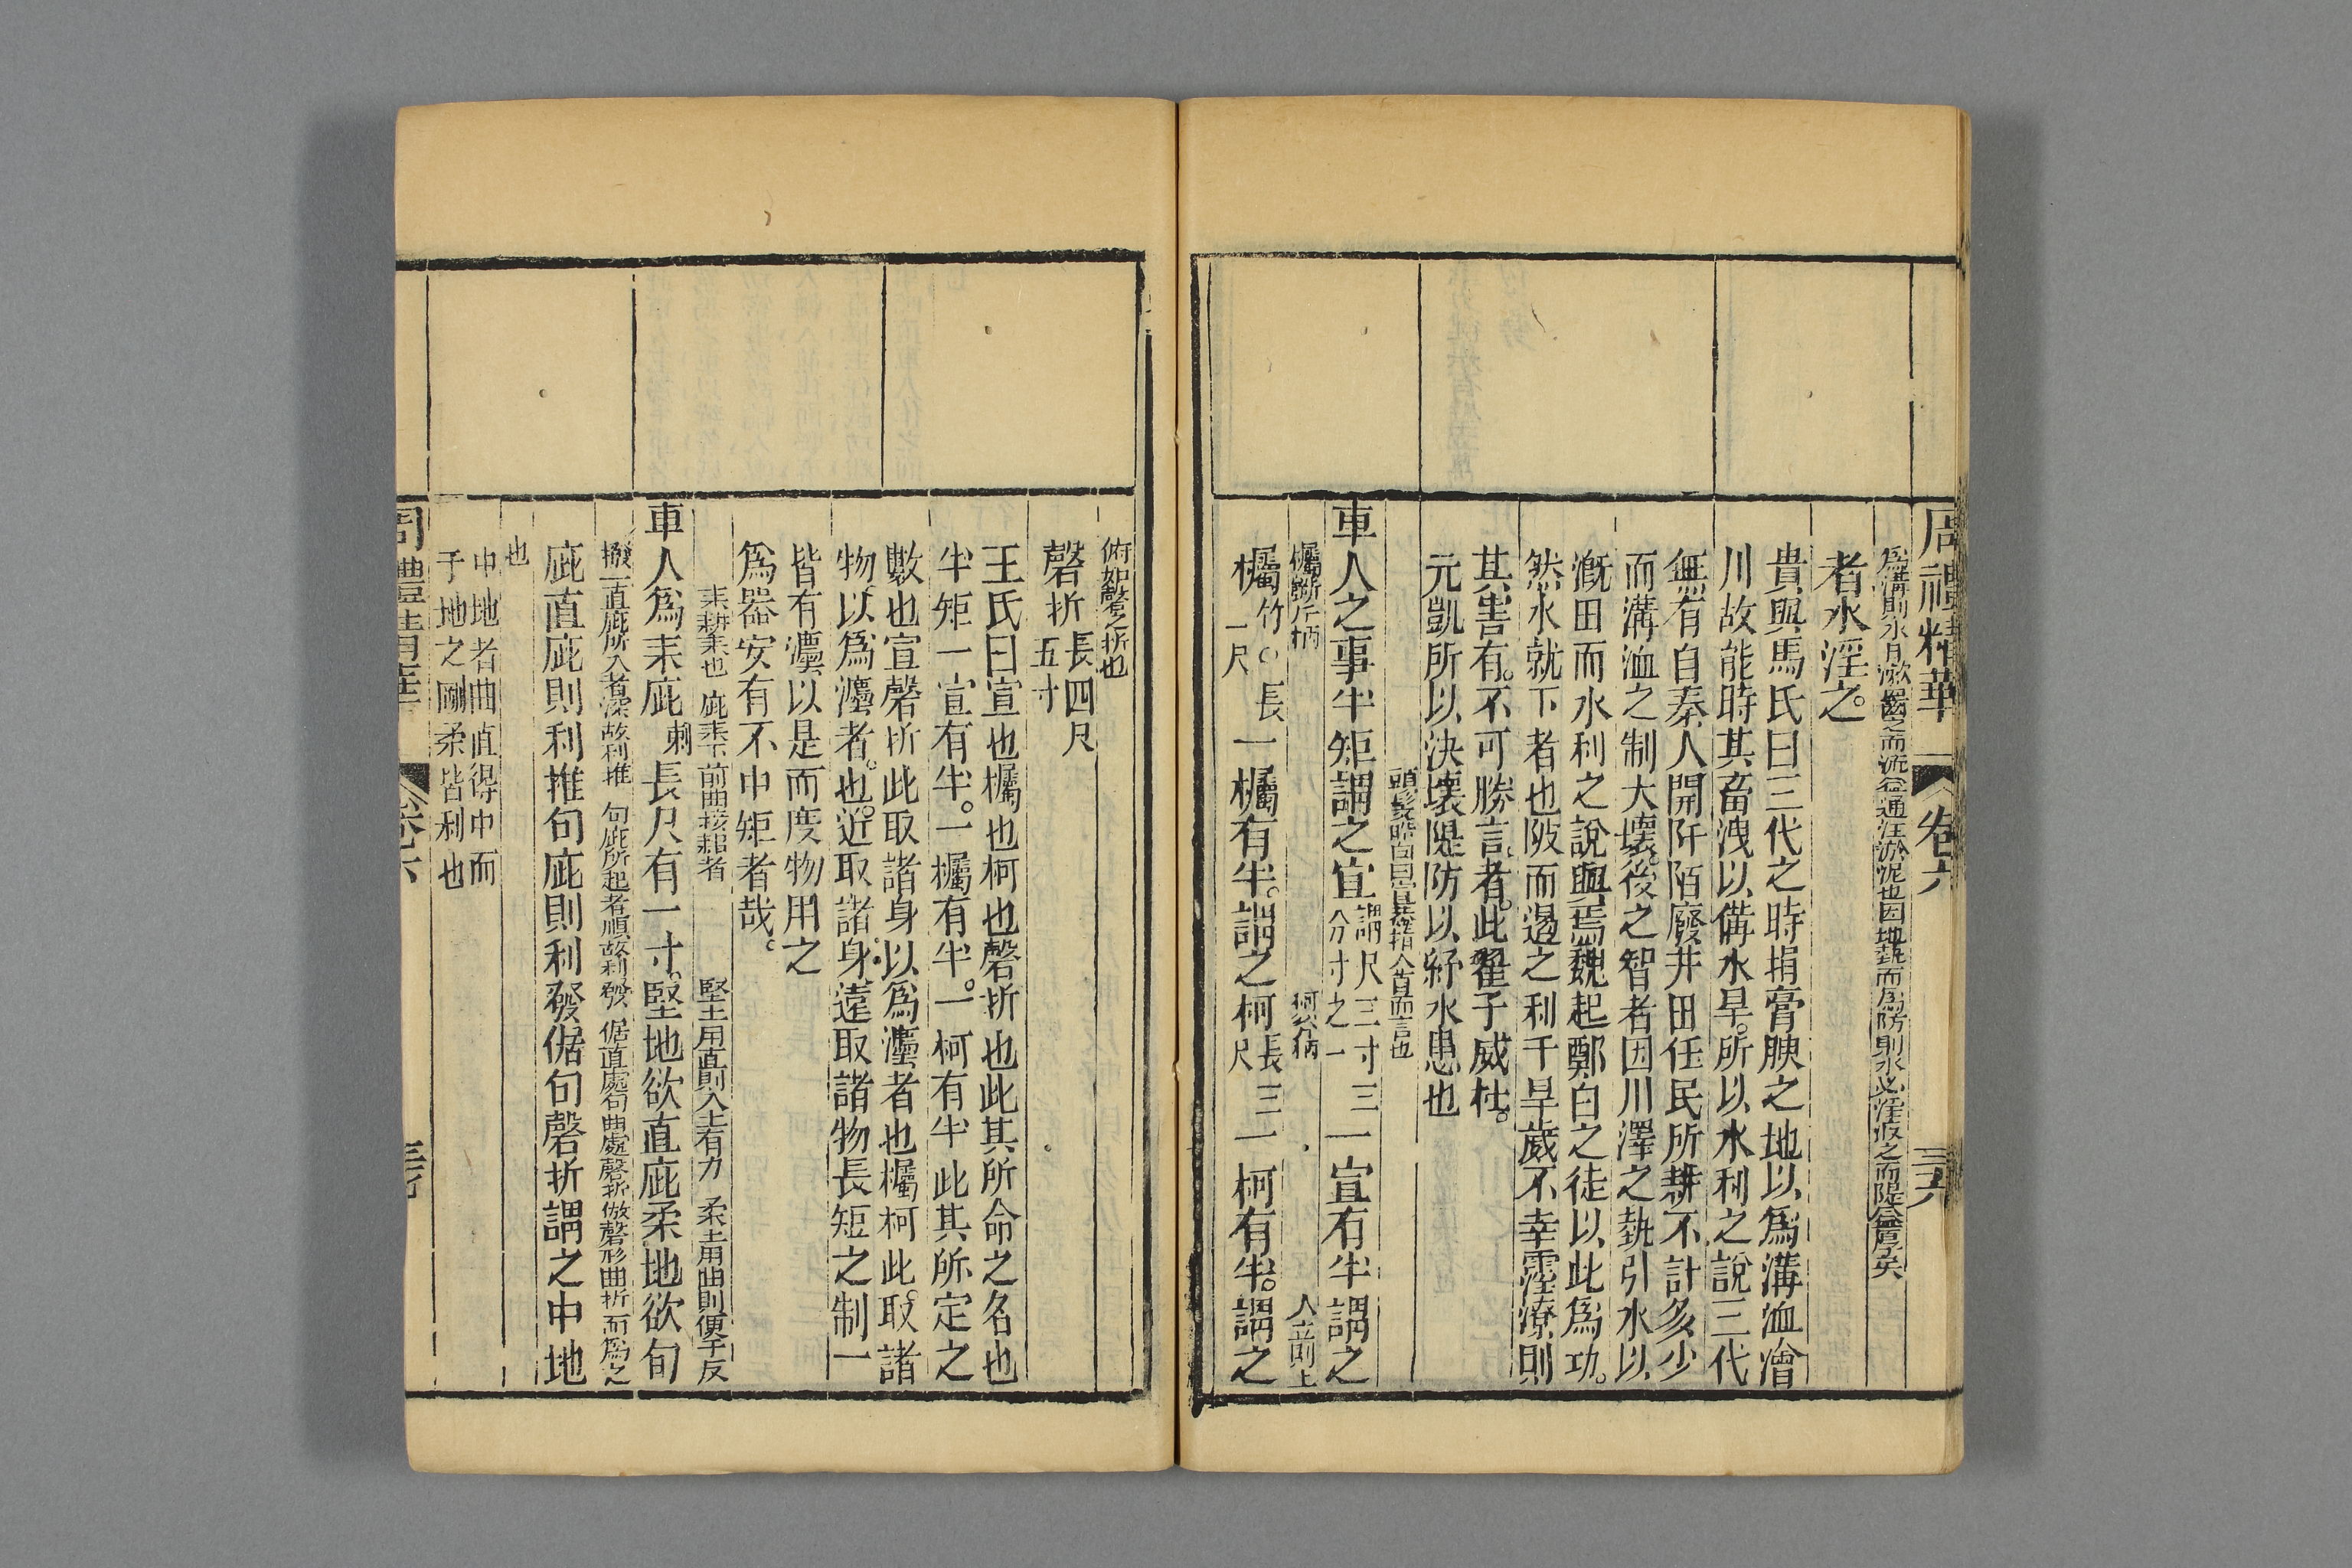 周禮精華　卷六
為溝則水自漱齧之而流益通注淤泥也因地埶而為防則水必淫液之而隄益厚矣
者水淫之。
貴與馬氏曰三代之時捐膏腴之地以為溝洫澮
川故能時其畜洩以備水旱。所以水利之說三代
無有自秦人開阡陌廢井田任民所耕不計多少
而溝洫之制大壞。後之智者因川澤之埶引水以
漑田而水利之說興焉魏起鄭白之徒以此為功。
然水就下者也陂而遏之利于旱歲不幸霪潦則
其害有。不可勝言者。此翟子威杜。
元凱所以決壞隄防以紓水患也
頭髮皓白曰宣蓋指人首而言也
車人之事半矩謂之宣謂尺三寸三分寸之一一宣有半謂之
欘斲斤柄　柯斧柄　人立則上
欘竹。長一尺一欘有半。謂之柯長三尺一柯有半。謂之
俯如磬之折也
磬折長四尺五寸
王氏曰宣也欘也柯也磬折也此其所命之名也
半矩一宣有半。一欘有半。一柯有半此其所定之
數也宣磬折此取諸身以為灋者也欘柯此。取諸
物。以為灋者。也。近取諸身。遠取諸物長短之制一
皆有灋以是而度物用之
為器安有不中矩者哉。
耒耕耒也　庛耒下前曲接耜者　堅土用直則入土有力　柔土用曲則便于反
車人為耒庛刺長尺有一寸。堅地欲直庛柔地欲句
撥　直庛所入者深故利推　句庛所起者順故利發　倨直處句曲處磬折倣磬形曲折而為之
庛直庛則利推句庛則利發倨句磬折謂之中地
也
中地者曲直得中而
于地之剛柔皆利也
周禮精華　卷六